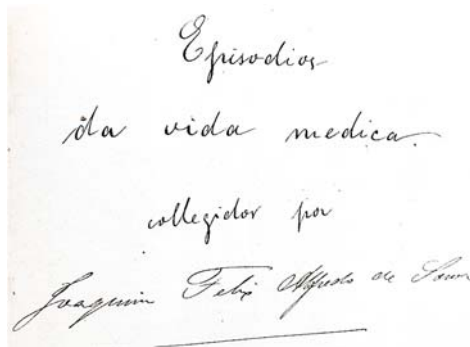 Episodios
da vida medica.
collegidos por
Joaquim Felix Alfredo de Sousa